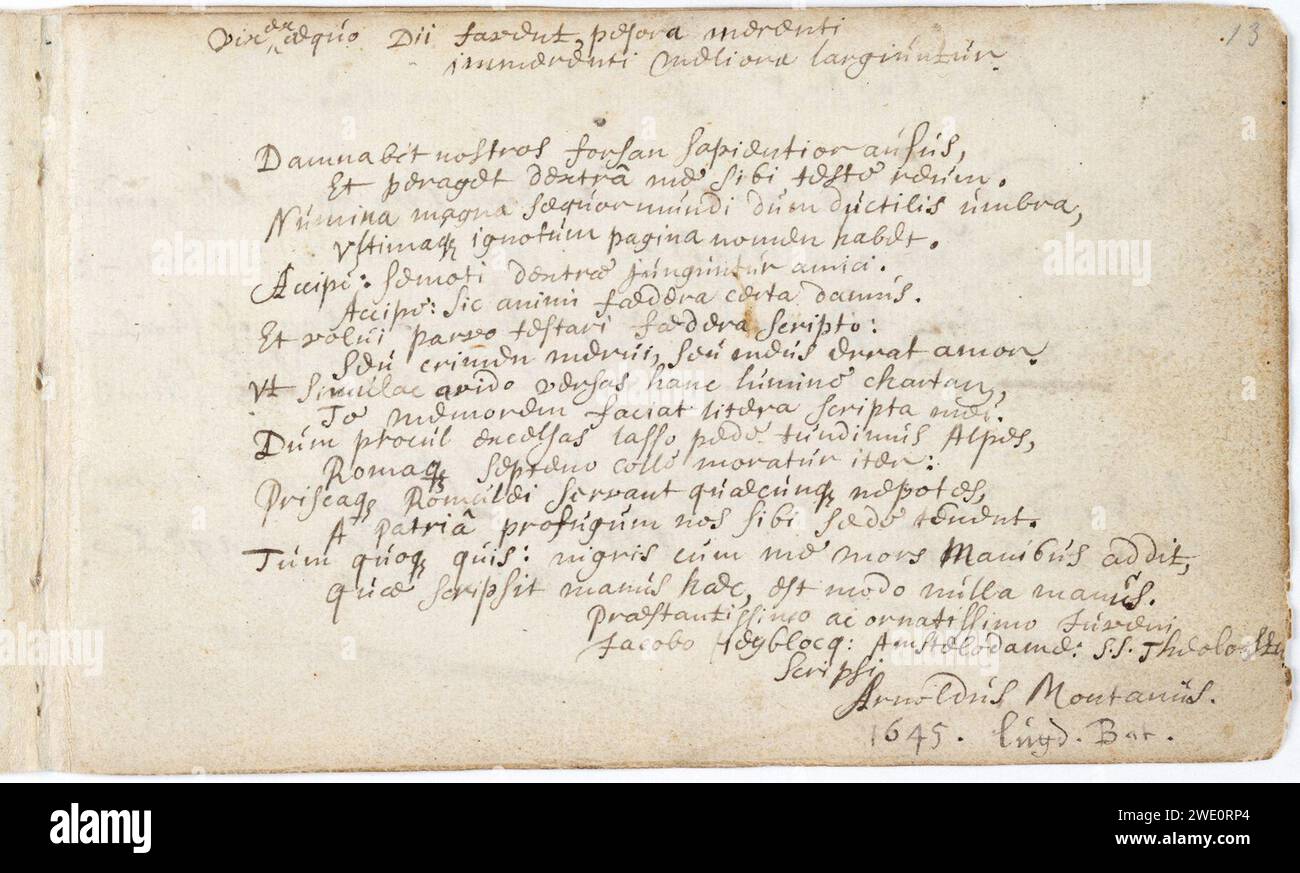 13
Vix ex æquo Dii favent, pejora merenti
immerenti meliora largiuntur.
Damnabit nostros forsan sapientior ausus,
Et peraget dextrâ me sibi teste reum.
Numina magna sequor mundi dum ductilis umbra,
Vltimaq; ignotum pagina nomen habet.
Accipe: semoti dextræ junguntur amici.
Accipe: sic animi fædera certa damus.
Et volui parvo testari fædera scripto:
Seu crimen merui, seu meus errat amor.
Vt simulac avido versas hanc lumine chartam,
Te memorem faciat litera scripta mei.
Dum procul excelsas lasso pede tundimus Alpes,
Romaq; septeno colle moratur iter:
Priscaq; Romulei servant quæcunq; nepotes,
A Patriâ profugum nos sibi sede tenent.
Tum quoq; quis: nigris cum me mors Manibus addit,
quæ scripsit manus hæc, est modo nulla manus.
Præstantissimo ac ornatissimo Iuveni
Jacobo Heyblocq: Amstelodame: S.S. Theolo
Scripsi
Arnoldus Montanus.
1645. Lugd. Bat.
alamy
alamy
Image ID: 2WE0RP4
www.alamy.com